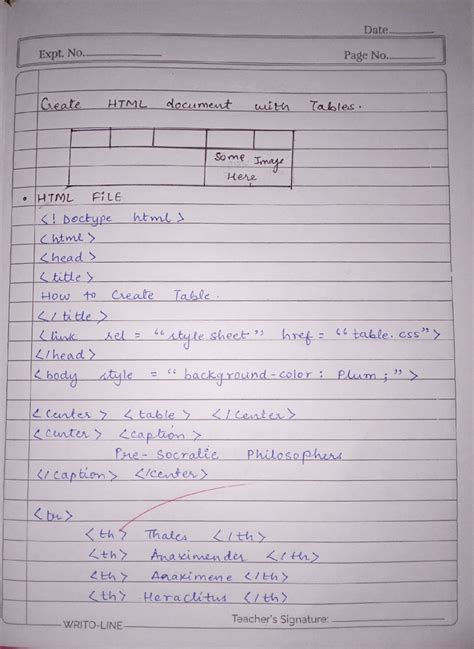 Date
Expt. No.
Page No.
Create HTML document with Tables.
Some Image
Here
• HTML FILE
<! Doctype html>
<html>
<head>
<title>
How to Create Table.
</title>
<link rel = "style sheet" href = "table.css">
</head>
<body style = "background-color: Plum;">
<Center> <table> </Center>
<Center> <caption>
Pre-Socratic Philosophers
</caption> </center>
<tr>
<th> Thales </th>
<th> Anaximender </th>
<th> Anaximene </th>
<th> Heraclitus </th>
WRITO-LINE
Teacher's Signature: